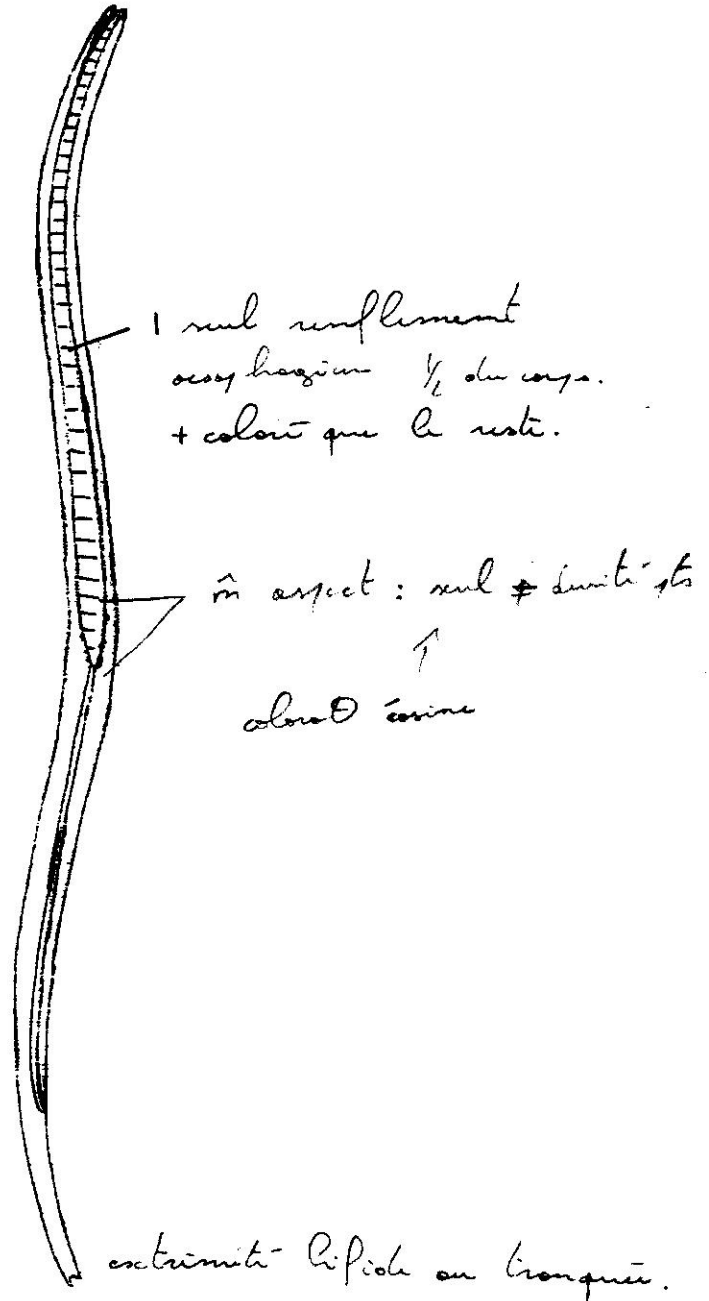 1 seul renflement
oesophagien 1/2 du corps.
+ coloré que le reste.
m̂ aspect : seul ≠ densité
↑
coloraθ éosine
extrémité bifide ou tronquée.